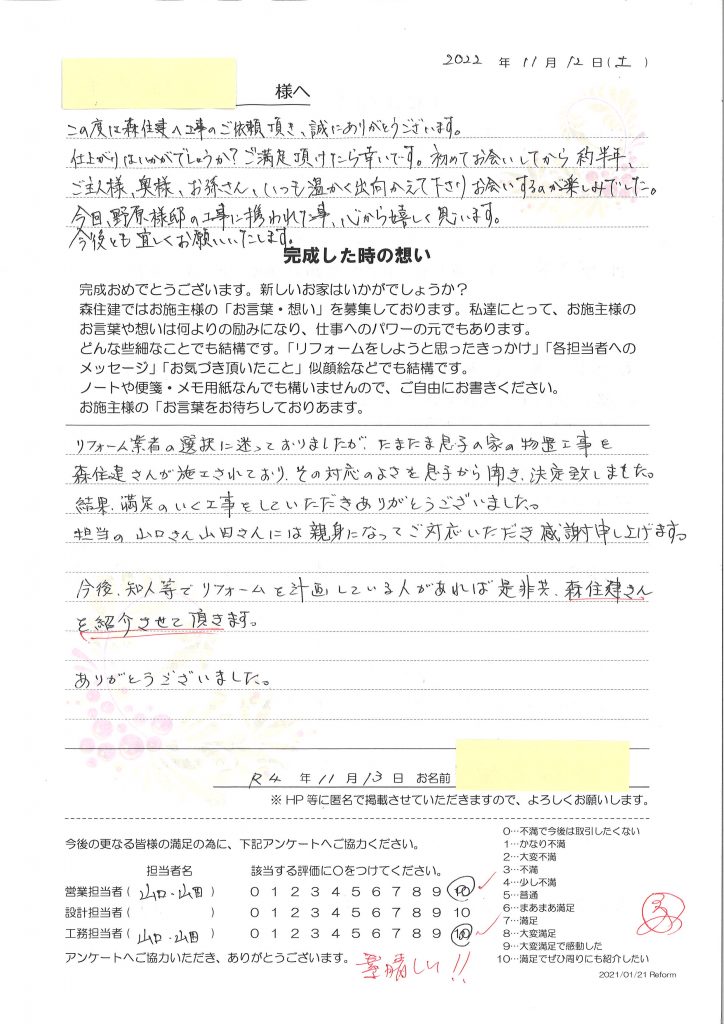 2022 年 11 月 12 日(土)
様へ
この度は森住建へ工事のご依頼頂き、誠にありがとうございます。
仕上がりはいかがでしょうか?ご満足頂けたら幸いです。初めてお会いしてから約半年、
ご主人様、奥様、お孫さん、いつも温かく出向かえて下さりお会いするのが楽しみでした。
今日、野原様邸の工事に携われた事、心から嬉しく思います。
今後とも宜しくお願いいたします。
完成した時の想い
完成おめでとうございます。新しいお家はいかがでしょうか?
森住建ではお施主様の「お言葉・想い」を募集しております。私達にとって、お施主様の
お言葉や想いは何よりの励みになり、仕事へのパワーの元でもあります。
どんな些細なことでも結構です。「リフォームをしようと思ったきっかけ」「各担当者への
メッセージ」「お気づき頂いたこと」似顔絵などでも結構です。
ノートや便箋・メモ用紙なんでも構いませんので、ご自由にお書きください。
お施主様の「お言葉をお待ちしておりあます。
リフォーム業者の選択に迷っておりましたが、たまたま息子の家の物置工事を
森住建さんが施工されており、その対応のよさを息子から聞き、決定致しました。
結果、満足のいく工事をしていただきありがとうございました。
担当の山口さん山田さんには親身になってご対応いただき感謝申し上げます。
今後、知人等でリフォームを計画している人があれば是非共、森住建さん
を紹介させて頂きます。
ありがとうございました。
R4 年 11 月 13 日 お名前
※HP等に匿名で掲載させていただきますので、よろしくお願いします。
今後の更なる皆様の満足の為に、下記アンケートへご協力ください。
担当者名 該当する評価に○をつけてください。
営業担当者( 山口・山田 ) 0 1 2 3 4 5 6 7 8 9 10
設計担当者( ) 0 1 2 3 4 5 6 7 8 9 10
工務担当者( 山口・山田 ) 0 1 2 3 4 5 6 7 8 9 10
アンケートへご協力いただき、ありがとうございます。
素晴しい!!
0…不満で今後は取引したくない
1…かなり不満
2…大変不満
3…不満
4…少し不満
5…普通
6…まあまあ満足
7…満足
8…大変満足
9…大変満足で感動した
10…満足でぜひ周りにも紹介したい
2021/01/21 Reform